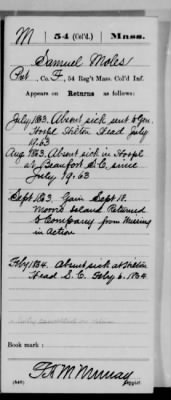 M | 54 (Col'd.) | Mass.
Samuel Moles
Pvt., Co. F, 54 Reg't Mass. Col'd Inf.
Appears on
Returns as follows:
July 1863. Absent sick sent to Gen.
Hospl Hilton Head July
19.63
Aug 1863. Absent sick in Hospl
at Beaufort S.C. since
July 19.63
Sept 1863. Gain Sept 18.
Morris Island Returned
to Company from Missing
in Action
Feby 1864. Absent sick at Hilton
Head S.C. Feby 6.1864.
Book mark:
(546)
Copyist.